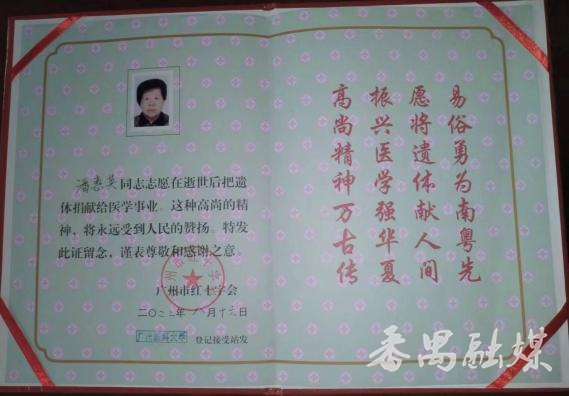 潘惠英同志志愿在逝世后把遗
体捐献给医学事业。这种高尚的精
神，将永远受到人民的赞扬。特发
此证留念，谨表尊敬和感谢之意。
广州市红十字会
二〇二二年八月十六日
广州医科大学 登记接受站发
易俗勇为南粤先
愿将遗体献人间
振兴医学强华夏
高尚精神万古传
番禺融媒